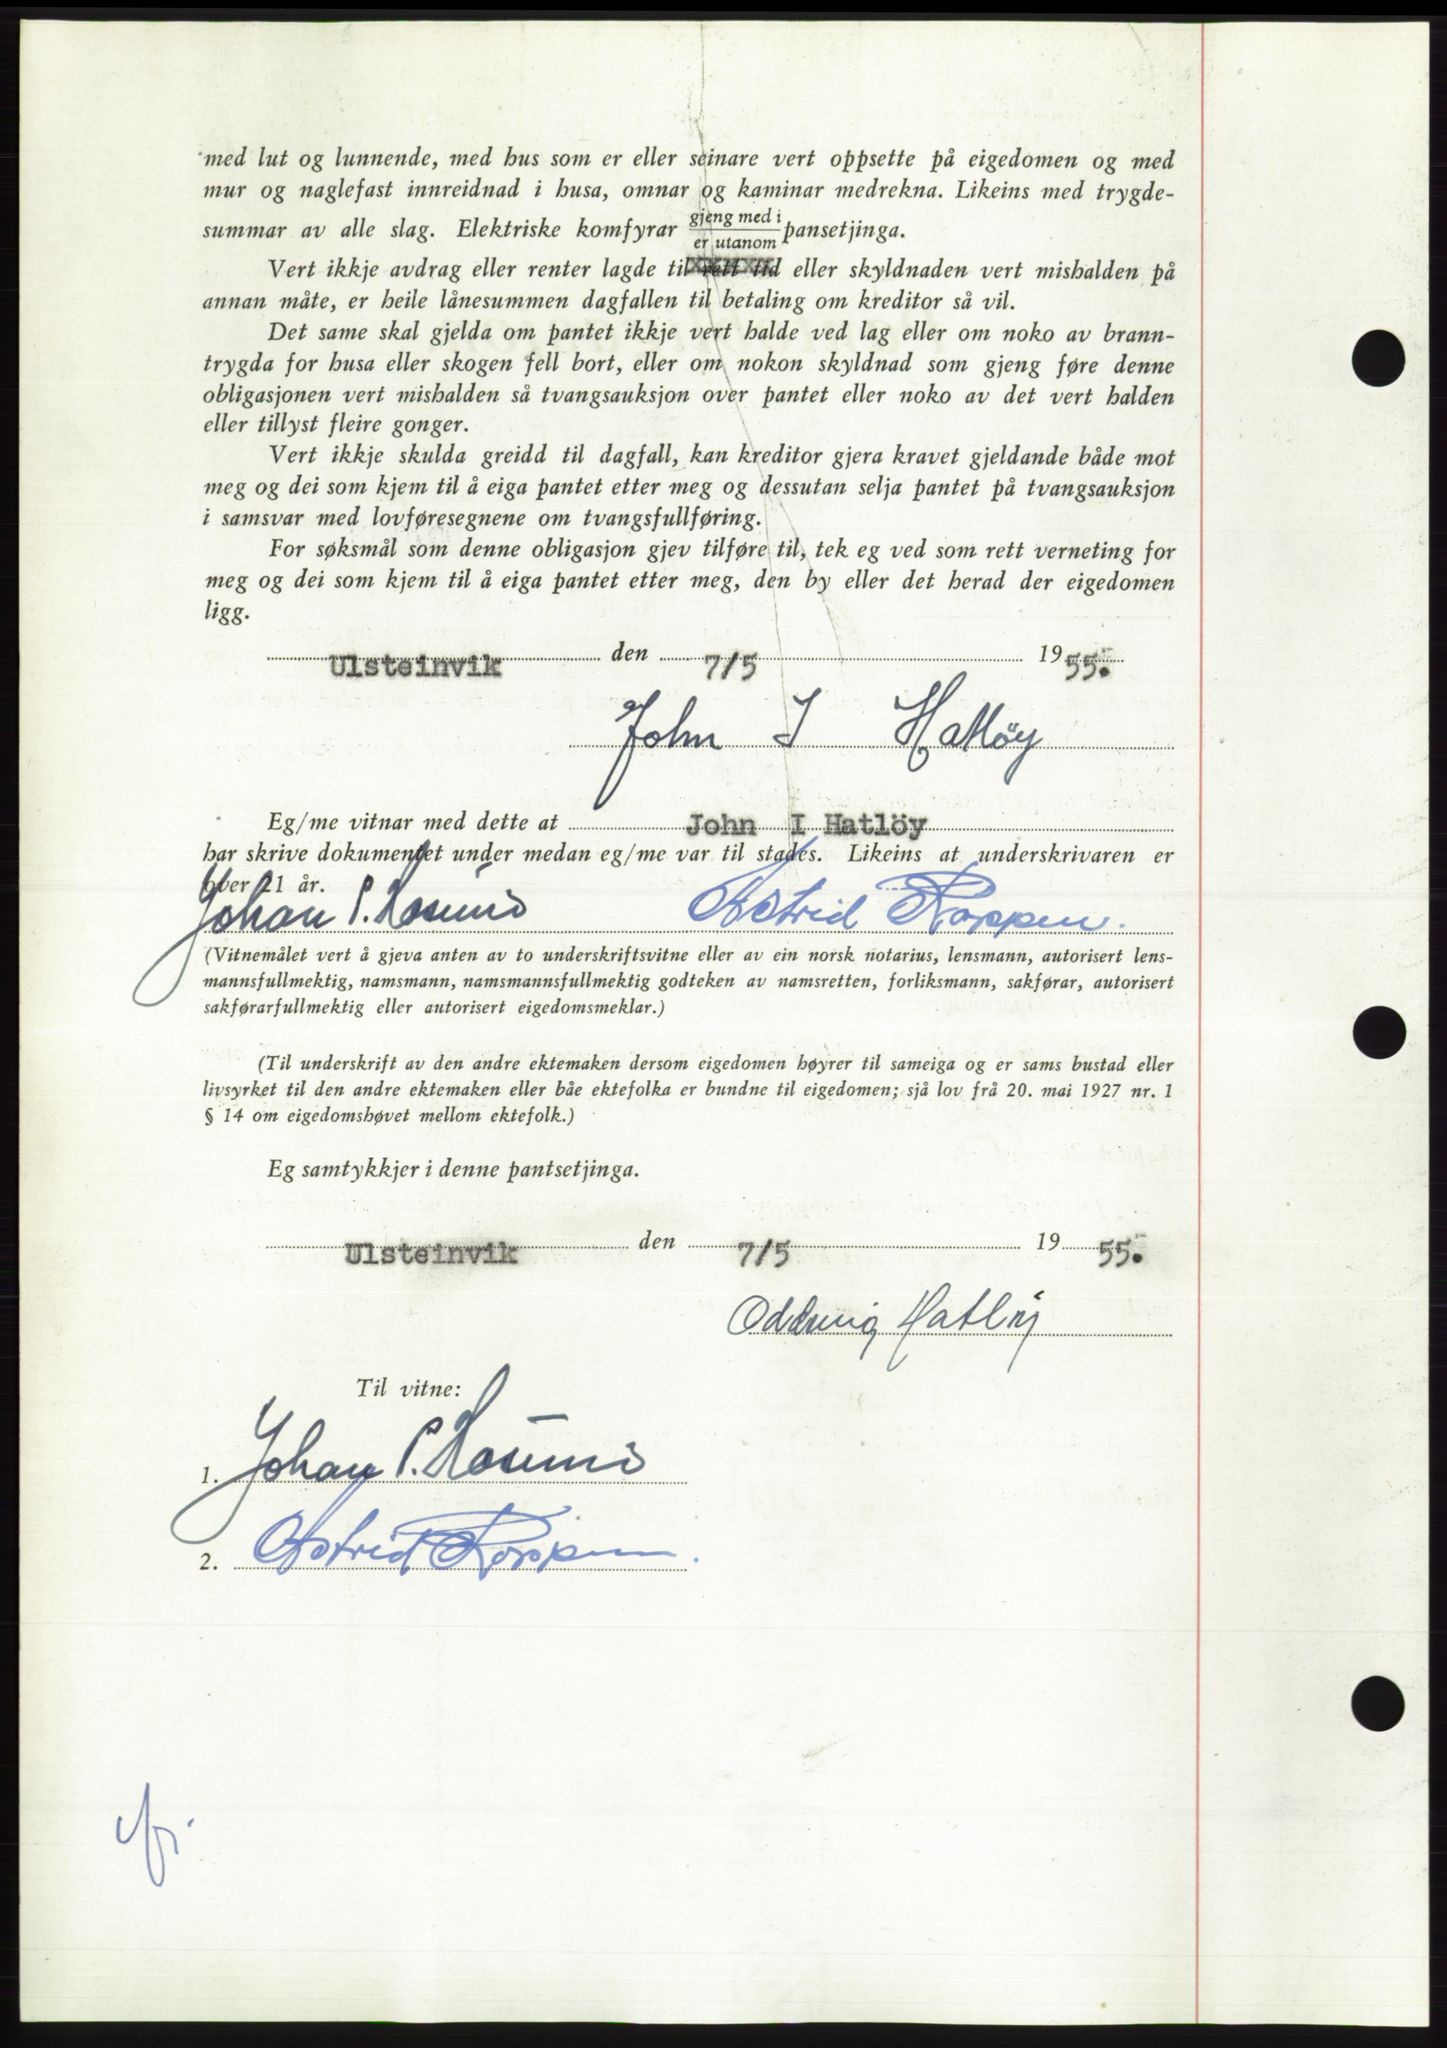 med lut og lunnende, med hus som er eller seinare vert oppsette på eigedomen og med
mur og naglefast innreidnad i husa, omnar og kaminar medrekna. Likeins med trygde-
summar av alle slag. Elektriske komfyrar gjeng med i / er utanom pansetjinga.
Vert ikkje avdrag eller renter lagde til rett tid eller skyldnaden vert mishalden på
annan måte, er heile lånesummen dagfallen til betaling om kreditor så vil.
Det same skal gjelda om pantet ikkje vert halde ved lag eller om noko av brann-
trygda for husa eller skogen fell bort, eller om nokon skyldnad som gjeng føre denne
obligasjonen vert mishalden så tvangsauksjon over pantet eller noko av det vert halden
eller tillyst fleire gonger.
Vert ikkje skulda greidd til dagfall, kan kreditor gjera kravet gjeldande både mot
meg og dei som kjem til å eiga pantet etter meg og dessutan selja pantet på tvangsauksjon
i samsvar med lovføresegnene om tvangsfullføring.
For søksmål som denne obligasjon gjev tilføre til, tek eg ved som rett verneting for
meg og dei som kjem til å eiga pantet etter meg, den by eller det herad der eigedomen
ligg.
Ulsteinvik den 7/5 1955.
John I Hatlöy
Eg/me vitnar med dette at John I Hatlöy
har skrive dokumentet under medan eg/me var til stades. Likeins at underskrivaren er
over 21 år.
Johan P. Astrid Roppen.
(Vitnemålet vert å gjeva anten av to underskriftsvitne eller av ein norsk notarius, lensmann, autorisert lens-
mannsfullmektig, namsmann, namsmannsfullmektig godteken av namsretten, forliksmann, sakførar, autorisert
sakførarfullmektig eller autorisert eigedomsmeklar.)
(Til underskrift av den andre ektemaken dersom eigedomen høyrer til sameiga og er sams bustad eller
livsyrket til den andre ektemaken eller båe ektefolka er bundne til eigedomen; sjå lov frå 20. mai 1927 nr. 1
§ 14 om eigedomshøvet mellom ektefolk.)
Eg samtykkjer i denne pantsetjinga.
Ulsteinvik den 7/5 1955.
Oddveig Hatlöy
Til vitne:
1. Johan P.
2. Astrid Roppen.